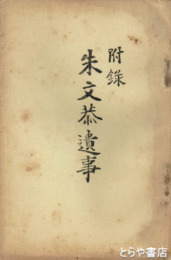 附錄
朱文恭遺事
とらや書店